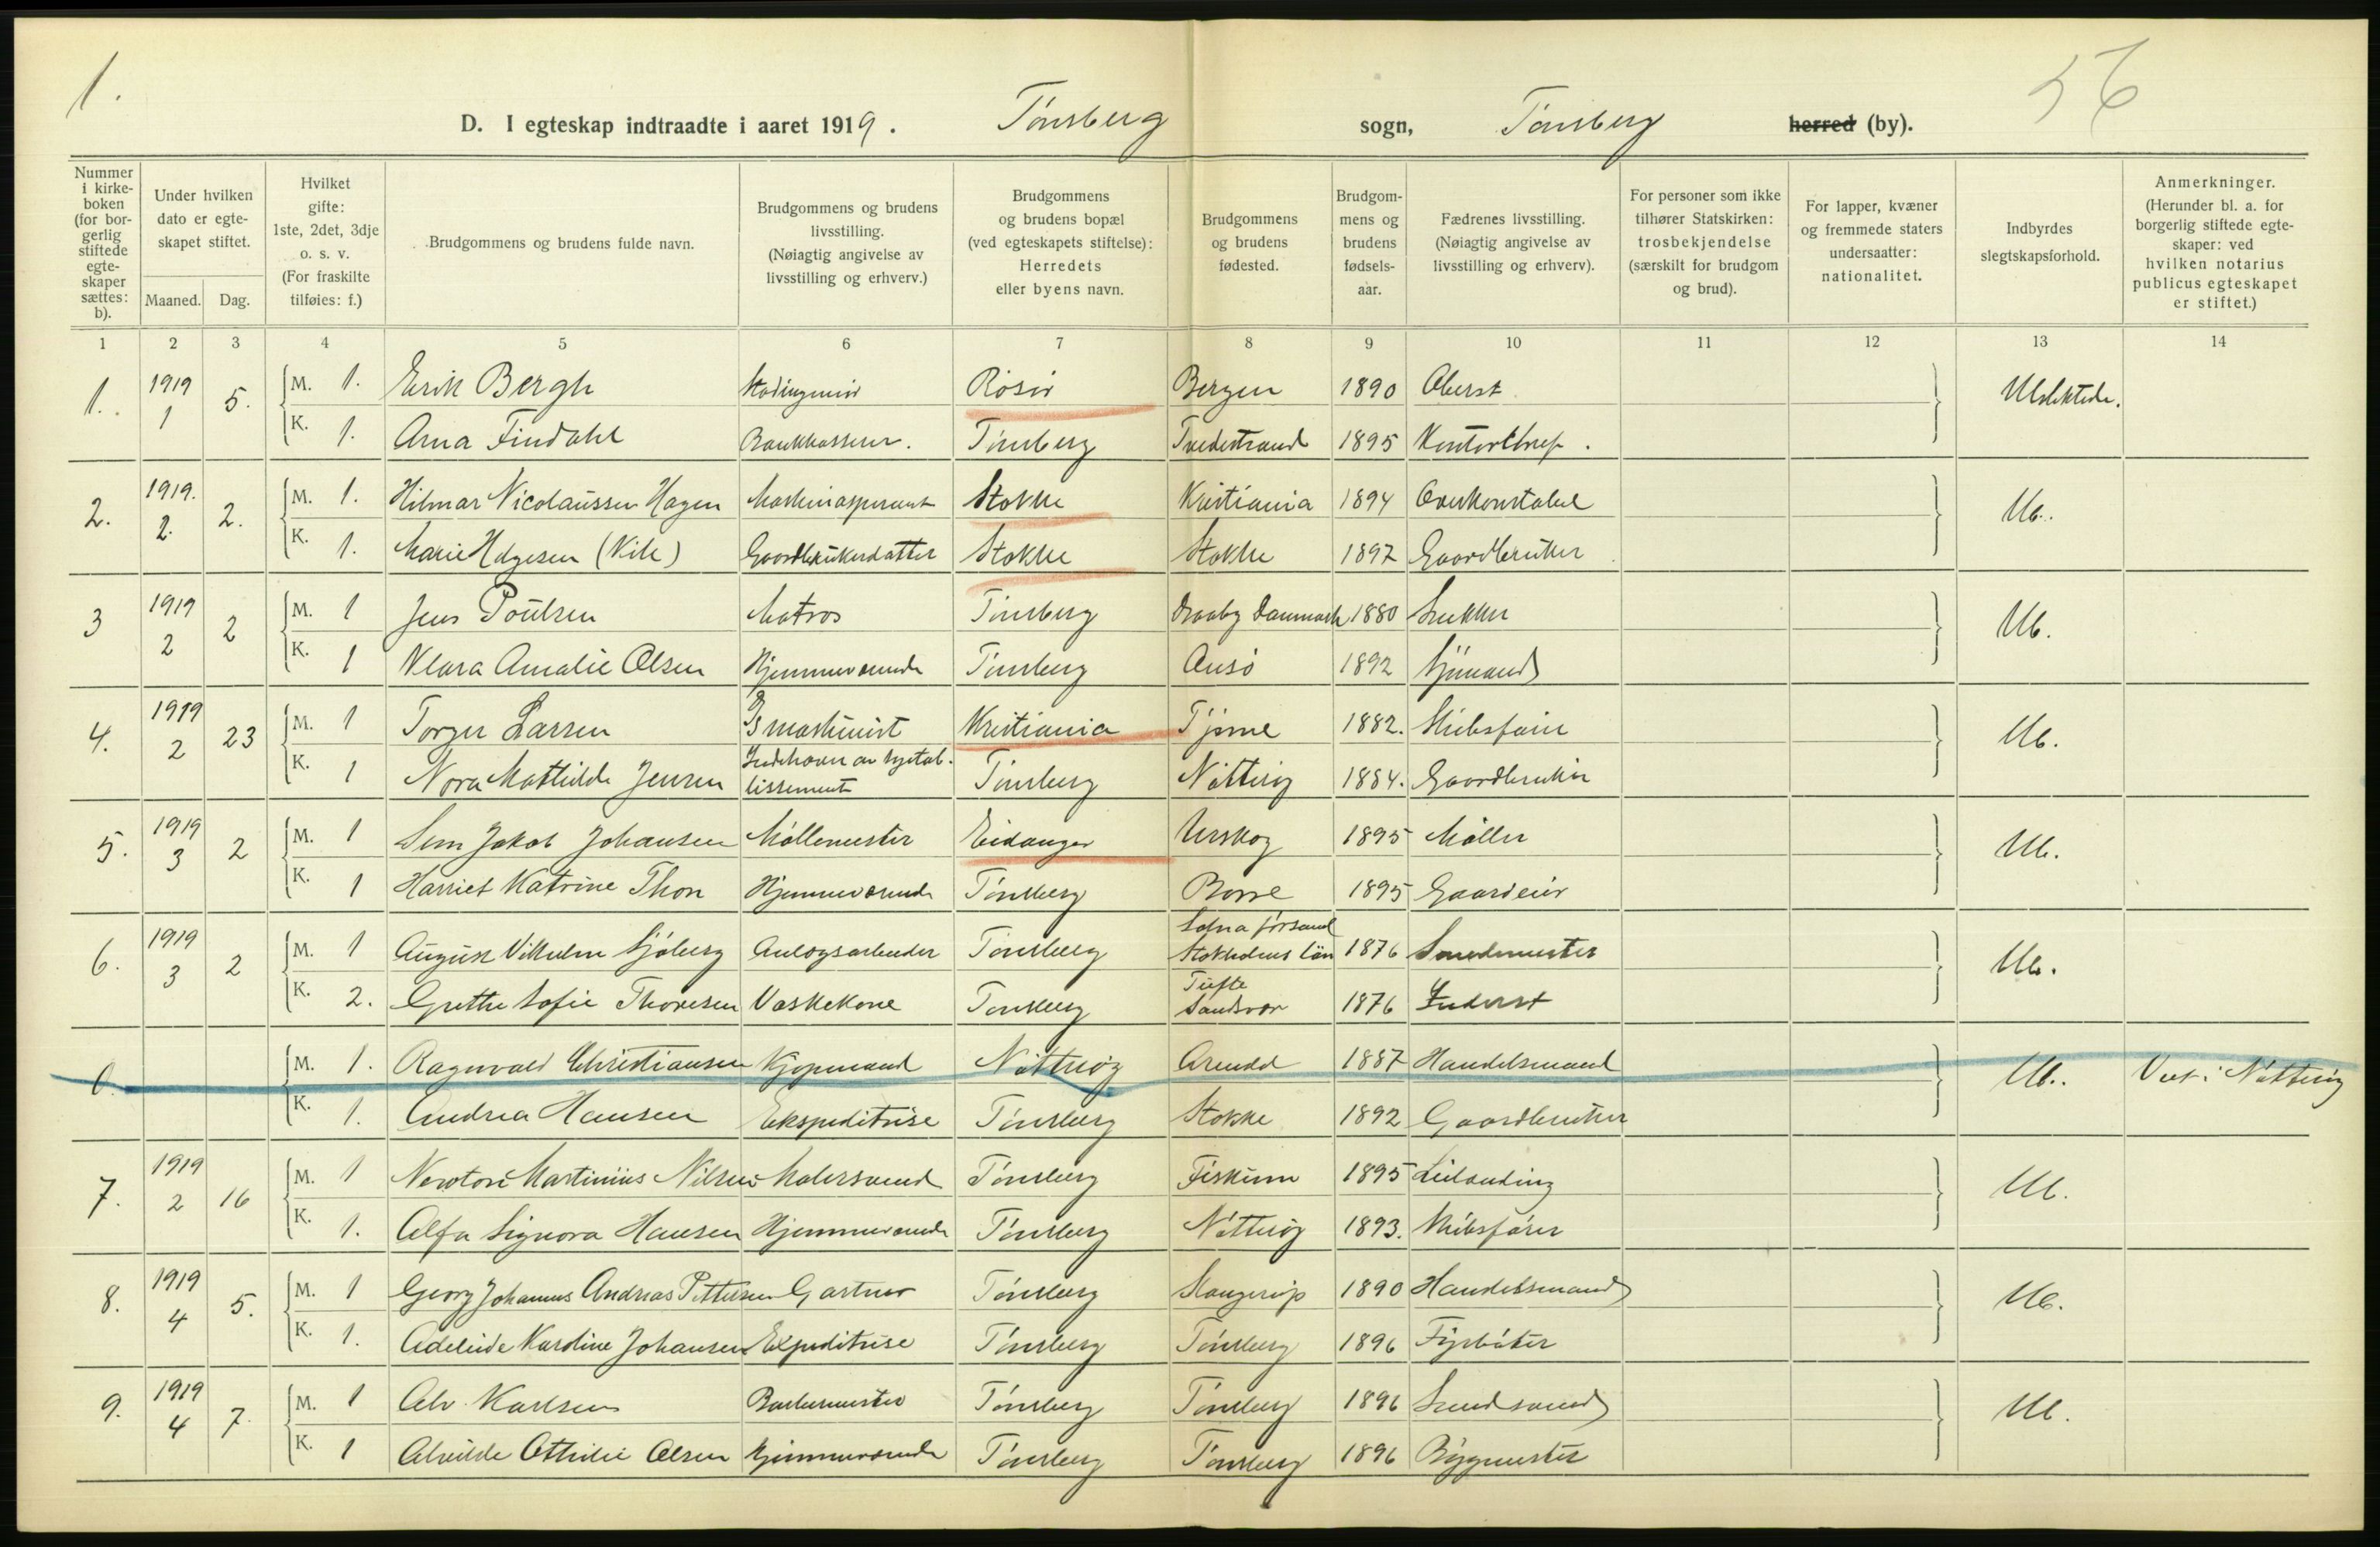 1.
56
D. I egteskap indtraadte i aaret 1919. Tønsberg sogn, Tønsberg herred (by).
Nummer i kirkeboken (for borgerlig stiftede egteskaper sættes: b).
Under hvilken dato er egteskapet stiftet.
Maaned. Dag.
Hvilket gifte: 1ste, 2det, 3dje o. s. v. (For fraskilte tilføies: f.)
Brudgommens og brudens fulde navn.
Brudgommens og brudens livsstilling. (Nøiagtig angivelse av livsstilling og erhverv.)
Brudgommens og brudens bopæl (ved egteskapets stiftelse): Herredets eller byens navn.
Brudgommens og brudens fødested.
Brudgommens og brudens fødselsaar.
Fædrenes livsstilling. (Nøiagtig angivelse av livsstilling og erhverv).
For personer som ikke tilhører Statskirken: trosbekjendelse (særskilt for brudgom og brud).
For lapper, kvæner og fremmede staters undersaatter: nationalitet.
Indbyrdes slegtskapsforhold.
Anmerkninger. (Herunder bl. a. for borgerlig stiftede egteskaper: ved hvilken notarius publicus egteskapet er stiftet.)
1 2 3 4 5 6 7 8 9 10 11 12 13 14
1. 1919 1 5. M. 1. Erik Bergh Stadingeniør Risør Bergen 1890 Oberst Ubslektede.
K. 1. Arna Findahl Bankkasserer. Tønsberg Tvedestrand 1895 Kontorchef.
2. 1919. 2. 2. M. 1. Hilmar Nicolaussen Hagen Maskinaspirant Stokke Kristiania 1894 Overkonstabel Ub.
K. 1. Marie Helgesen (Vik) Gaardbrukerdatter Stokke Stokke 1897 Gaardbruker
3 1919 2 2 M. 1 Jens Poulsen Matros Tønsberg Draaby Danmark 1880 Snekker Ub.
K. 1 Klara Amalie Olsen Hjemmeværende Tønsberg Ausø 1892 Sjømand
4. 1919 2 23 M. 1 Torger Larsen Ismaskinist Kristiania Tjøme 1882. Skibsfører Ub.
K. 1 Nora Mathilde Jensen Indehaver av systablissement Tønsberg Nøtterøy 1884. Gaardbruker
5. 1919 3 2 M. 1 Sem Jakob Johansen Møllemester Eidanger Urskog 1895 Møller Ub.
K. 1 Harriet Katrine Thon Hjemmeværende Tønsberg Borre 1895 Gaardeier
6. 1919 3 2 M. 1 August Vilhelm Sjøberg Anlægsarbeider Tønsberg Solna församl Stokholms län 1876 Smedmester Ub.
K. 2. Grethe Sofie Thoresen Vaskekone Tønsberg Tufte Sandsvær 1876 Inderst
0. M. 1. Ragnvald Christiansen Kjøpmand Nøtterøy Arendal 1887 Handelsmand Ub. Viet i Nøtterøy
K. 1. Andrea Hansen Ekspeditrise Tønsberg Stokke 1892 Gaardbruker
7. 1919 2 16 M. 1 Martinius Nilsen Malersvend Tønsberg Fiskum 1895 Leilænding Ub.
K. 1. Alfa Signora Hansen Hjemmeværende Tønsberg Nøtterøy 1893. Skibsfører
8. 1919 4 5. M. 1 Georg Johannes Andreas Pettersen Gartner Tønsberg Slangerup 1890 Handelsmand Ub.
K. 1. Adeleide Karoline Johansen Expeditrise Tønsberg Tønsberg 1896 Fyrbøter
9. 1919 4 7. M. 1 Alv Karlsen Barbermester Tønsberg Tønsberg 1896 Smedsvend Ub.
K. 1 Alvilde Othilie Olsen Hjemmeværende Tønsberg Tønsberg 1896 Bygmester